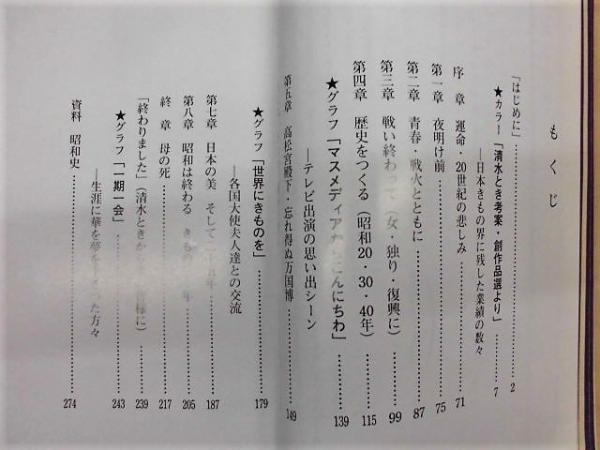 もくじ
「はじめに」 2
★カラー「清水とき考案・創作品選より」 7
―日本きもの界に残した業績の数々
序 章 運命・20世紀の悲しみ 71
第一章 夜明け前 75
第二章 青春・戦火とともに 87
第三章 戦い終わって（女・独り・復興に） 99
第四章 歴史をつくる（昭和20・30・40年） 115
★グラフ「マスメディア こんにちわ」 139
―テレビ出演の思い出シーン
第五章 高松宮殿下・忘れ得ぬ万国博 149
★グラフ「世界にきものを」 179
―各国大使夫人達との交流
第七章 日本の美 そして 年 187
第八章 昭和は終わる きもの 年 205
終 章 母の死 217
「終わりました」（清水ときか 様に） 239
★グラフ「一期一会」 243
―生涯に華を夢を った方々
資料 昭和史 274